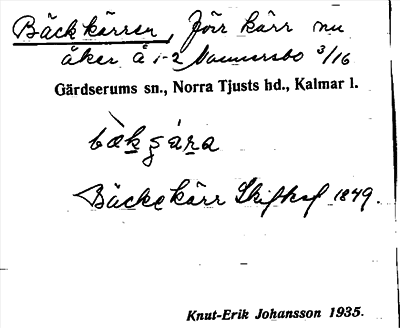 Bäckkärren, förr kärr nu
åker å 1-2 Nammersbo 3/16
Gärdserums sn., Norra Tjusts hd., Kalmar l.
Bäckekärr Skifteskf 1849.
Knut-Erik Johansson 1935.